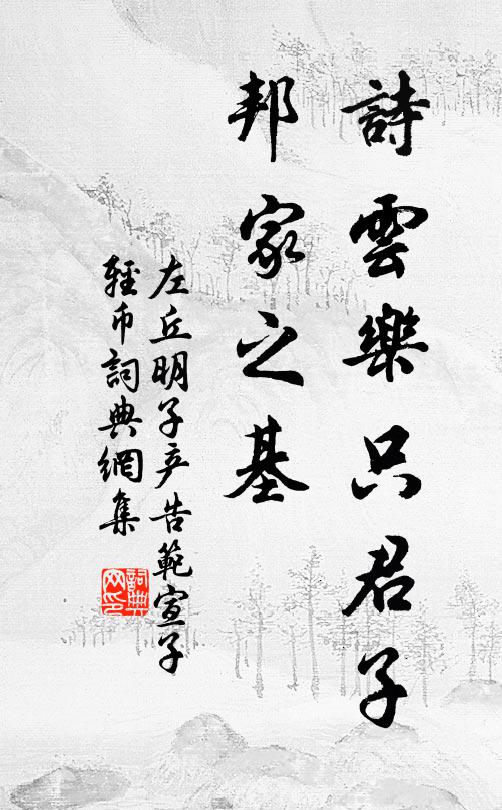 詩雲樂只君子
邦家之基
左丘明子產告範宣子
輕幣詞典網集
詞典网印